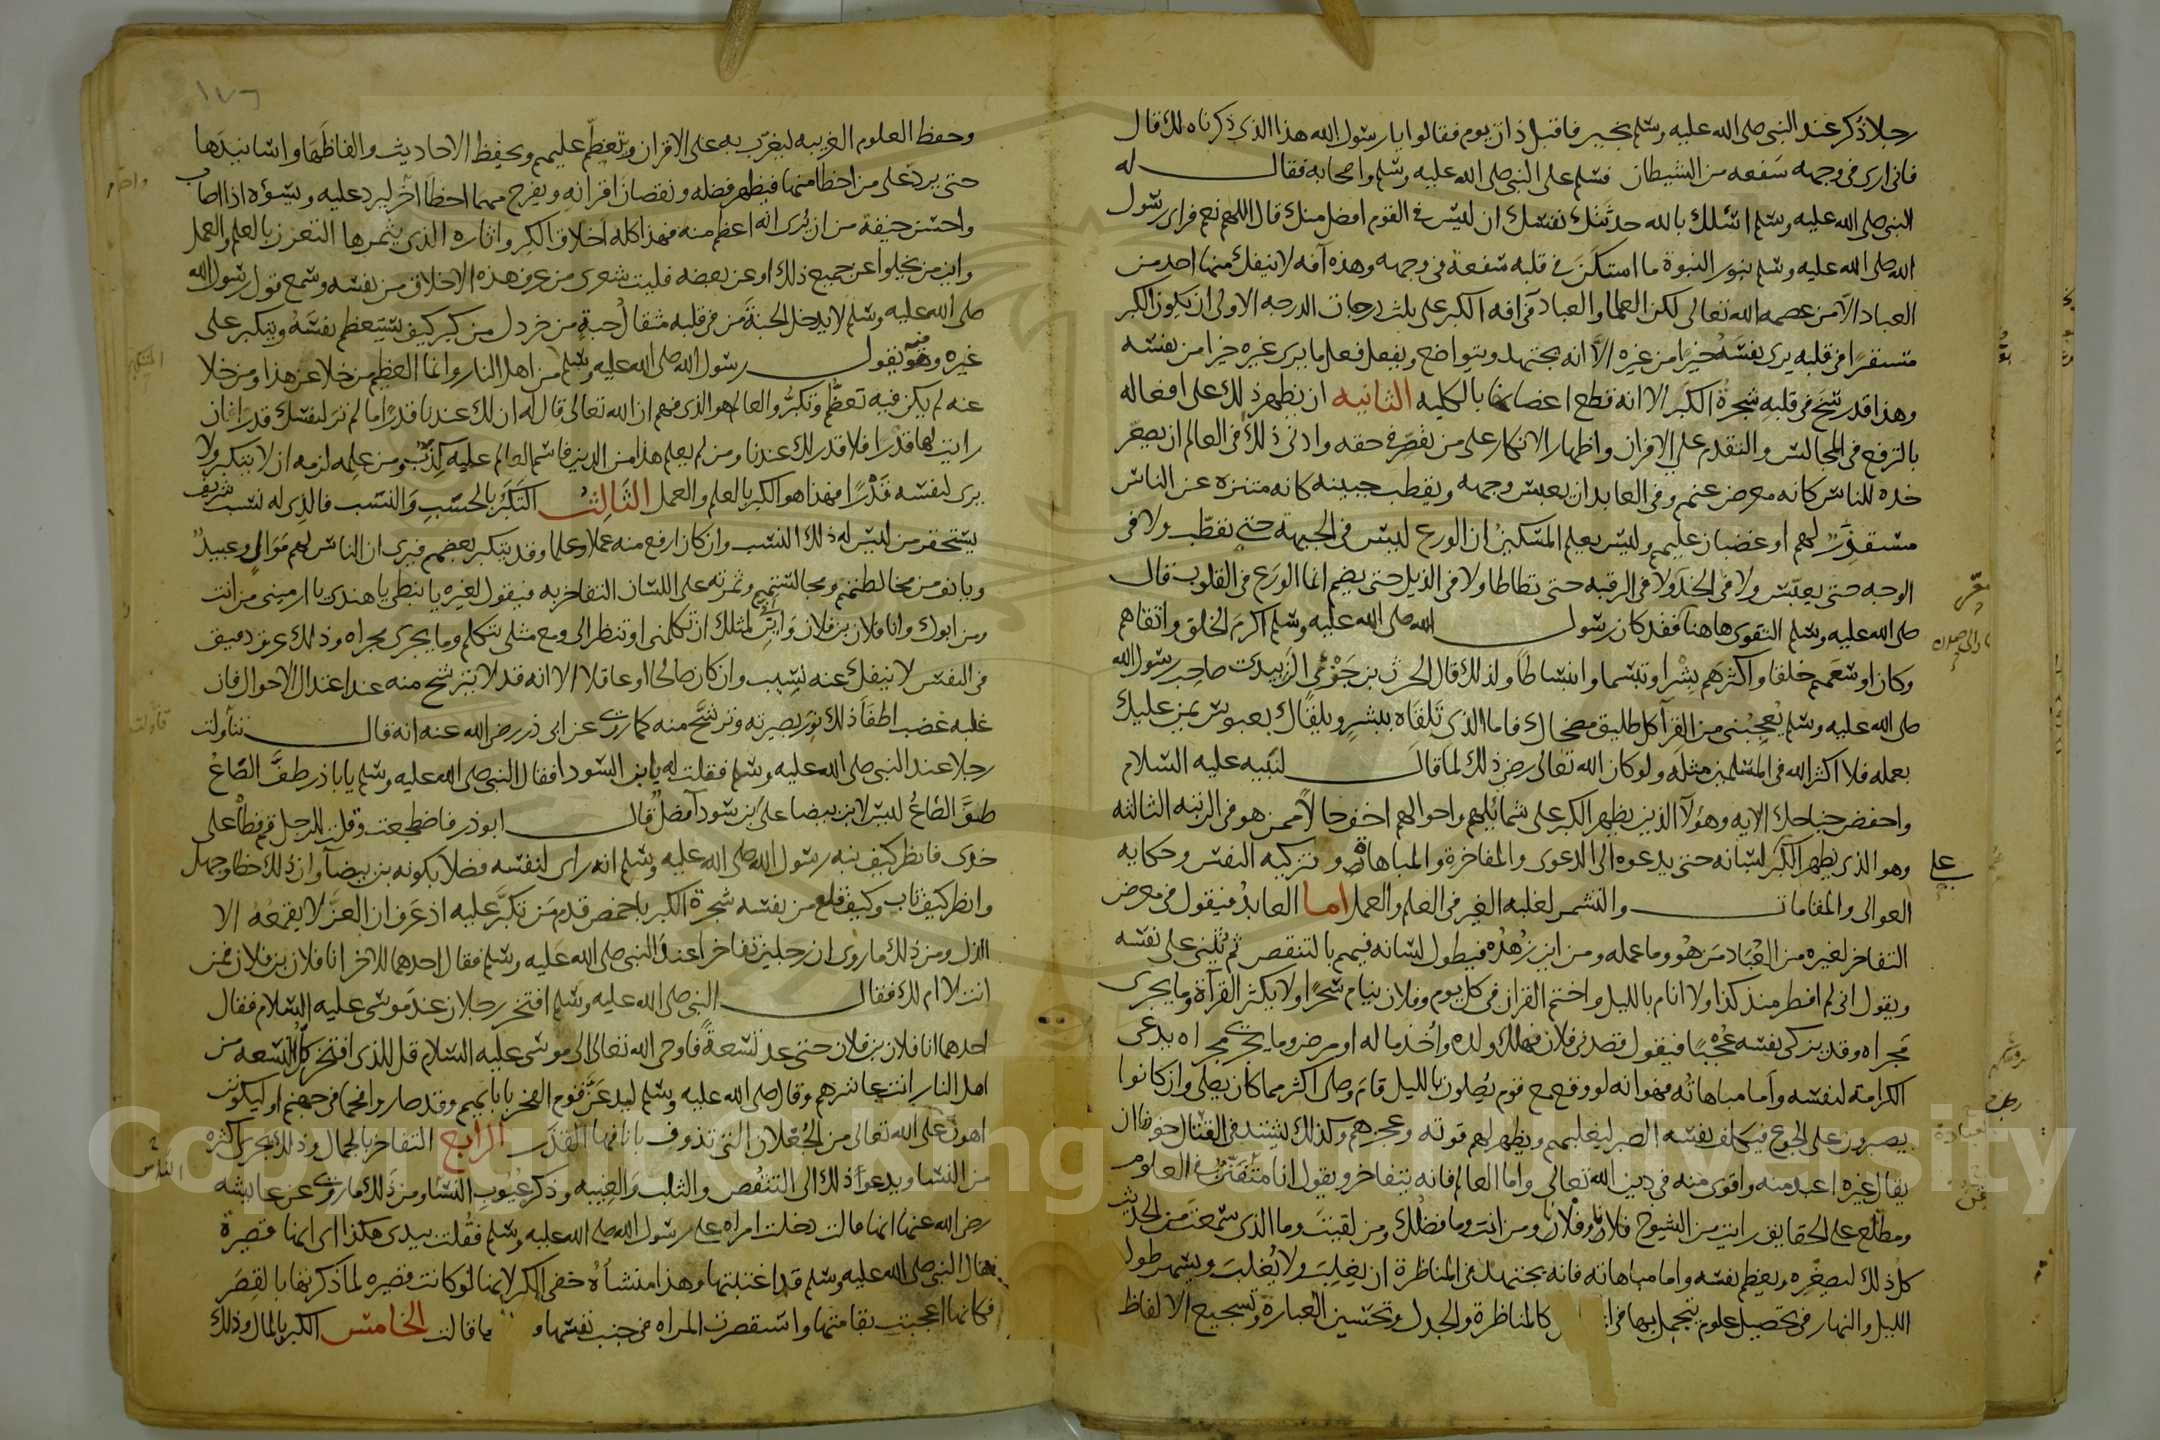 رجلا ذكر عند النبي صلى الله عليه وسلم بخير فاقبل ذات يوم فقالوا يا رسول الله هذا الذي ذكرناه لك قال
فاني ارى في وجهه سفعه من الشيطان فسلم على النبي صلى الله عليه وسلم واصحابه فقال له
النبي صلى الله عليه وسلم اسلك بالله حدثتك نفسك ان ليس في القوم افضل منك قال اللهم نعم فراى رسول
الله صلى الله عليه وسلم بنور النبوة ما استكن في قلبه سفعة في وجهه وهذه آفه لا ينفك منها احد من
العباد الا من عصمه الله تعالى لكن العلما والعباد في افه الكبر على ثلث درجات الدرجه الاولى ان يكون الكبر
مستقرا في قلبه يرى نفسه خيرا من غيره الا انه يجتهد ويتواضع ويفعل فعل ما يرى غيره خيرا من نفسه
وهذا قد رسخ في قلبه شجرة الكبر الا انه قطع اعضانها بالكليه الثانيه ان يظهر ذلك على افعاله
بالترفع في المجالس والتقدم على الاقران واظهار الانكار على من يقصر في حقه وادنى ذلك في العالم ان يصعر
خده للناس كانه معرض عنهم وفي العابد ان يعبس وجهه ويقطب جبينه كانه متنزه عن الناس
مستقذر لهم او غضبان عليهم وليس يعلم المسكين ان الورع ليس في الجبهة حتى تقطب ولا في
الوجه حتى يعبس ولا في الخد ولا في الرقبه حتى تطاطا ولا في الذيل حتى يضم انما الورع في القلوب قال
صلى الله عليه وسلم التقوى هاهنا فقد كان رسول الله صلى الله عليه وسلم اكرم الخلق واتقاهم
وكان اوسعهم خلقا واكثرهم بشرا وتبسما وانبساطا ولذلك قال الحرث بن جزء الزبيدي صاحب رسول الله
صلى الله عليه وسلم يعجبني من القرآ كل طليق مضحاك فاما الذي تلقاه ببشر ويلقاك بعبوس يمن عليك
بعمله فلا اكثر الله في المسلمين مثله ولو كان الله تعالى رضي ذلك لما قال لنبيه عليه السلام
واخفض جناحك الايه وهؤلآ الذين يظهر الكبر على شمائلهم واحوالهم اخف حالا ممن هو في الرتبه الثالثه
وهو الذي يظهر الكبر لسانه حتى يدعوه الى الدعوى والمفاخرة والمباهاة وتزكيه النفس وحكايه
على
العوالى والمقامات والتشمر لغلبه الغير في العلم والعمل اما العابد فيقول في معرض
التفاخر لغيره من العباد من هو وما عمله ومن اين زهده فيطول لسانه فيهم بالتنقص ثم يثني على نفسه
ويقول اني لم افطر منذ كذا ولا انام بالليل واختم القران في كل يوم وفلان ينام سحرا ولا يكثر القرآة وما يجرى
مجراه وقد يزكى نفسه فيقول قصدني فلان فهلك ولده واخذ ماله او مرض وما يجري مجراه يدعى
الكرامة لنفسه واما مباهاته فهو انه لو وقع مع قوم يصلون بالليل قام وصلى اكثر مما كان يصلى وان كانوا
يصبرون على الجوع فيكلف نفسه الصبر ليغلبهم ويظهر لهم قوته وعجزهم وكذلك يشتد في القتال خوفا ان
يقال غيره اعبد منه واقوى منه في دين الله تعالى واما العالم فانه يتفاخر ويقول انا متفنن في العلوم
ومطلع على الحقايق رايت من الشيوخ فلانا وفلانا ومن انت وما فضلك ومن لقيت وما الذي سمعت من الحديث
كل ذلك ليصغره ويعظم نفسه واما مباهاته فانه يجتهد في المناظرة ان يغلب ولا يغلب ويسهر طول
الليل والنهار في تحصيل علوم يتجمل بها في كالمناظرة والجدل وتحسين العبارة وتسجيع الالفاظ
١٧٦
وحفظ العلوم الغريبه ليغرب به على الاقران وتعظم عليهم ويحفظ الاحاديث والفاظها واسانيدها
حتى يرد على من اخطا منها فيظهر فضله ونقصان اقرانه ويفرح مهما اخطا آخر ليرد عليه ويسؤه اذا اصاب
واحسن خيفة من ان يرى انه اعظم منه فهذا كله اخلاق الكبر واثاره الذي يثمرها التعزز بالعلم والعمل
واين من يخلوا عن جميع ذلك او عن بعضه فليت شعرى من عرف هذه الاخلاق من نفسه وسمع قول رسول الله
صلى الله عليه وسلم لا يدخل الجنة من في قلبه مثقال حبة من خردل من كبر كيف يستعظم نفسه ويتكبر على
غيره وهو بقول رسول الله صلى الله عليه وسلم من اهل النار وانما العظيم من خلا عن هذا ومن خلا
عنه لم يكن فيه تعظم وتكبر والعالم هو الذي فهم ان الله تعالى قال له ان لك عندنا قدرا ما لم تر لنفسك قدرا فان
رايت لها قدرا فلا قدر لك عندنا ومن لم يعلم هذا من الدين فاسم العالم عليه كذب ومن علمه لزمه ان لا يتكبر ولا
يرى لنفسه قدرا فهذا هو الكبر بالعلم والعمل الثالث التكبر بالحسب والنسب فالذي له نسب شريف
يستحقر من ليس له ذلك النسب وان كان ارفع منه عملا وعلما وقد يتكبر بعضهم فيرى ان الناس لهم موالى وعبيد
ويانف من مخالطتهم ومجالستهم وثمرته على اللسان التفاخر به فيقول لغيره يا نبطي يا هندي يا ارميني من انت
ومن ابوك وانا فلان بن فلان واين لمثلك ان تكلمني او تنظر الى ومع مثلى تتكلم وما يجرى مجراه وذلك عرق دفين
في النفس لا ينفك عنه نسيب وان كان صالحا او عاقلا الا انه قد لا يترشح منه عند اعتدال الاحوال فان
غلبه غضب اطفا ذلك نور بصيرته وترشح منه كما روى عن ابى ذر رضي الله عنه انه قال
رجلا عند النبي صلى الله عليه وسلم فقلت له يابن السودا فقال النبي صلى الله عليه وسلم يا با ذر طف الصاع
طف الصاع ليس لابن بيضا على ابن سودآ فضل قال ابو ذر فاضطجعت وقلت للرجل قم فطا على
خدى فانظر كيف نبه رسول الله صلى الله عليه وسلم انه راى لنفسه فضلا بكونه بن بيضآ وان ذلك خطا وجهل
وانظر كيف تاب وكيف قلع من نفسه شجرة الكبر باخمص قدم من تكبر عليه اذ عرف ان العز لا يقمعه الا
الذل ومن ذلك ما روى ان رجلين تفاخرا عند النبي صلى الله عليه وسلم فقال احدهما للاخر انا فلان بن فلان فمن
انت لا ام لك فقال النبي صلى الله عليه وسلم افتخر رجلان عند موسى عليه السلام فقال
احدهما انا فلان بن فلان حتى عد تسعة فاوحى الله تعالى الى موسى عليه السلام قل للذى افتخر كل التسعه من
اهل النار انت عاشرهم وقال صلى الله عليه وسلم ليدعن قوم الفخر بابآئهم وقد صاروا فحما في جهنم او ليكونن
اهون على الله تعالى من الجعلان التى تذوف بانافها القذر الرابع التفاخر بالجمال وذلك يجرى اكثره
من النسا ويدعو ذلك الى التنقص والثلب والغيبه وذكر عيوب النسا ومن ذلك ما روى عن عايشه
رضي الله عنها انها قالت دخلت امراه على رسول الله صلى الله عليه وسلم فقلت بيدى هكذا اى انها قصيرة
فقال النبي صلى الله عليه وسلم قد اغتبتها وهذا منشأه خفى الكبر لانها لو كانت قصيره لما ذكرتها بالقصر
فكانها اعجبت بقامتها واستقصرت المراه في جنب نفسها ما قالت الخامس الكبر بالمال وذلك
Copyright © King Saud University